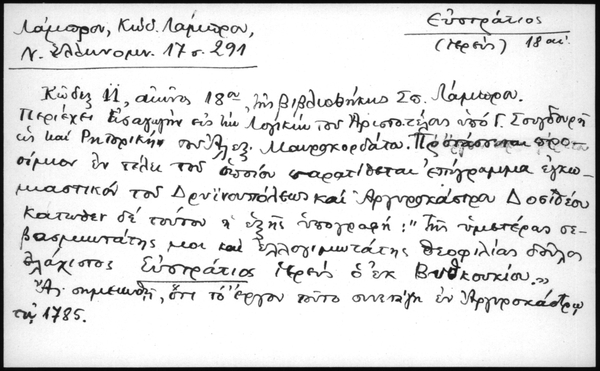 Λάμπρου, Κώδ. Λάμπρου,
Ν. Ἑλληνομν. 17 σ. 291
Εὐστράτιος
(ἱερεύς) 18 αἰ.
Κῶδιξ 11, αἰῶνος 18ου, τῆς βιβλιοθήκης Σπ. Λάμπρου.
Περιέχει Εἰσαγωγὴν εἰς τὴν Λογικὴν τοῦ Ἀριστοτέλους ὑπὸ Γ. Σουγδουρῆ
ὡς καὶ Ρητορικὴν τοῦ Ἀλεξ. Μαυρκορδάτο. Προτάσσεται προ-
οίμιον ἐν τέλει τοῦ ὁποίου παρατίθεται ἐπίγραμμα ἐγκω-
μιαστικὸν τοῦ Δρυϊνουπόλεως καὶ Ἀργυροκάστρου Δοσιθέου
κάτωθεν δὲ τούτου ἡ ἑξῆς ὑπογραφή: "Τῆς ὑμετέρας σε-
βασμιωτάτης μοι καὶ ἐλλογιμωτάτης θεοφιλίας δοῦλος
ἐλάχιστος Εὐστράτιος ἱερεὺς ὁ ἐκ Βυθκουκίου.»
Ἂς σημειωθῇ, ὅτι τὸ ἔργον τοῦτο συνετάγη ἐν Ἀργυροκάστρῳ
τῷ 1785.